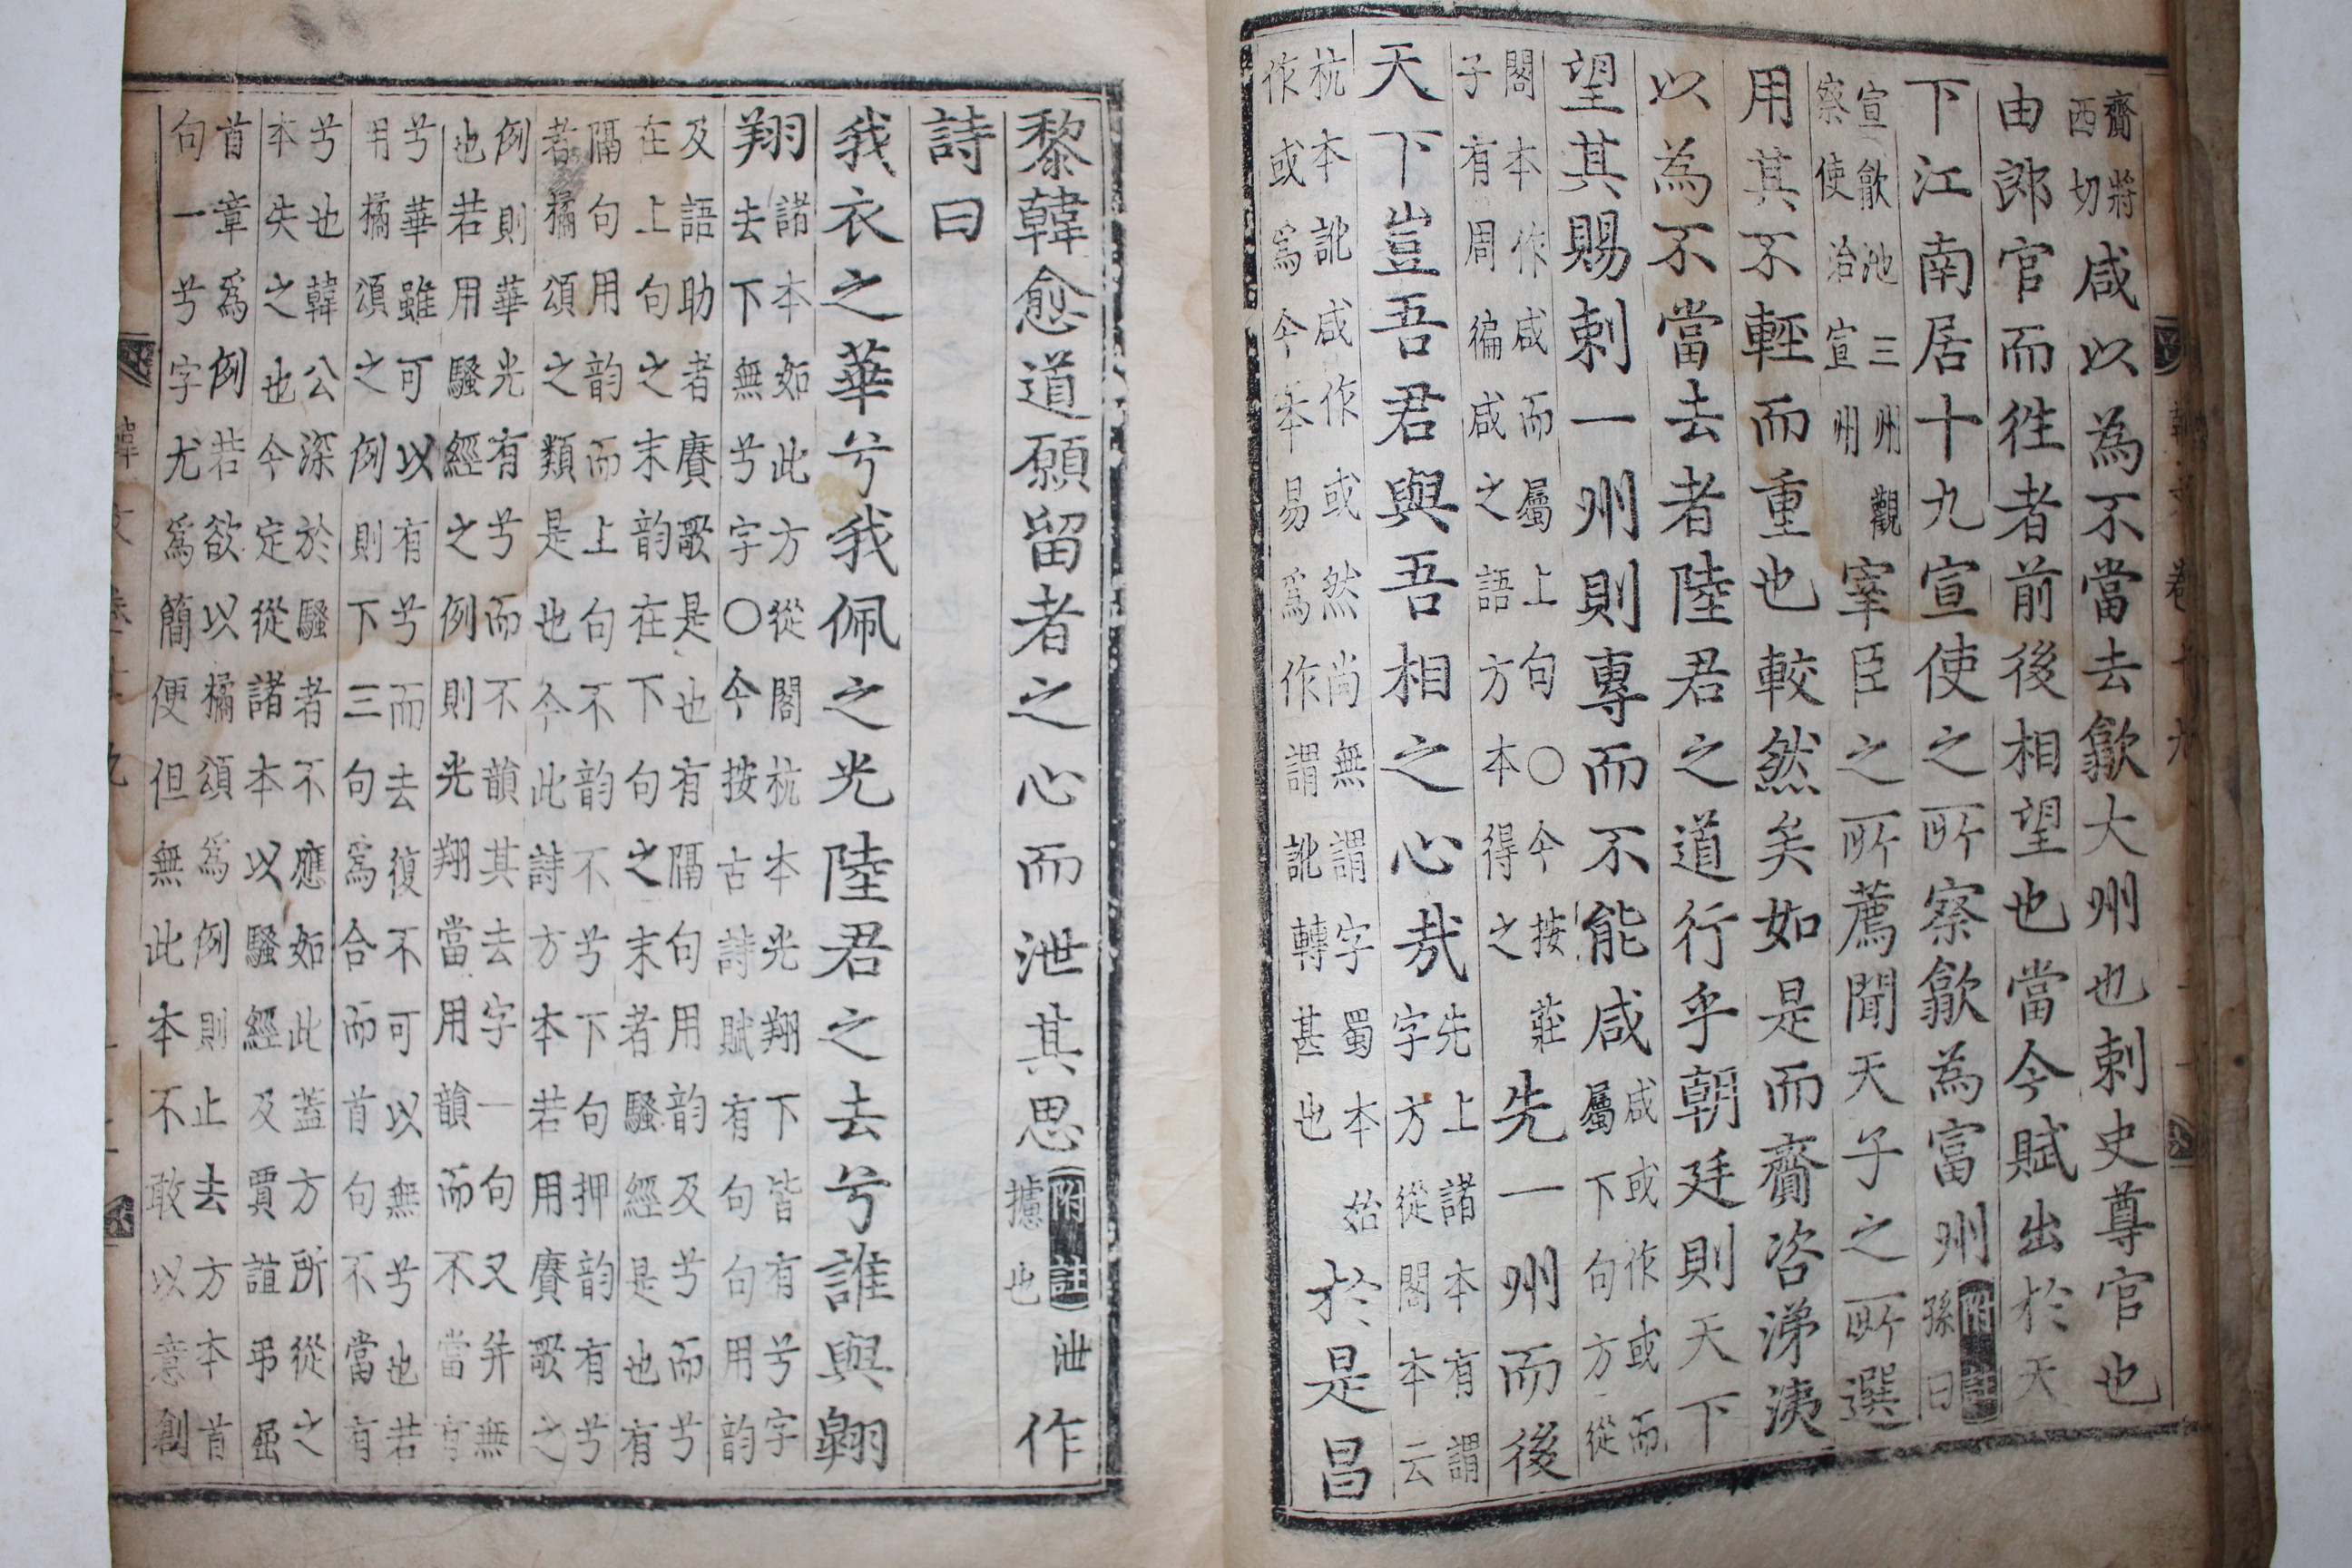 齎將
西切
咸以為不當去歙大州也刺史尊官也
由郎官而徃者前後相望也當今賦出於天
下江南居十九宣使之所察歙為富州附註孫曰
宣歙池三州觀
察使治宣州
宰臣之所薦聞天子之所選
用其不輕而重也較然矣如是而齎咨涕洟
以為不當去者陸君之道行乎朝廷則天下
望其賜刺一州則專而不能咸
咸或作或而
屬下句方從
閣本作咸而屬上句○今按莊
子有周徧咸之語方本得之
先一州而後
天下豈吾君與吾相之心哉
先上諸本有謂
字方從閣本云
杭本訛咸作或然尚無謂字蜀本始
作或爲今本易爲作謂訛轉甚也
於是昌
黎韓愈道願留者之心而泄其思附註泄
攄也
作
詩曰
我衣之華兮我佩之光陸君之去兮誰與翶
翔
諸本如此方從閣杭本光翔下皆有兮字
去下無兮字○今按古詩賦有句句用韵
及語助者賡歌是也有隔句用韵及兮而兮
在上句之末韵在下句之末者騷經是也有
隔句用韵而上句不韵不兮下句押韵有兮
者橘頌之類是也今此詩方本若用賡歌之
例則華光有兮而不韻其去字一句又并無
也若用騷經之例則光翔當用韻而不當有
兮華雖可以有兮而去復不可以無兮也若
用橘頌之例則下三句爲合而首句不當有
兮也韓公深於騷者不應如此蓋方所從之
本失之也今定從諸本以騷經及賈誼弔屈
首章爲例若欲以橘頌爲例則止去方本首
句一兮字尤爲簡便但無此本不敢以意創
韓文卷十九